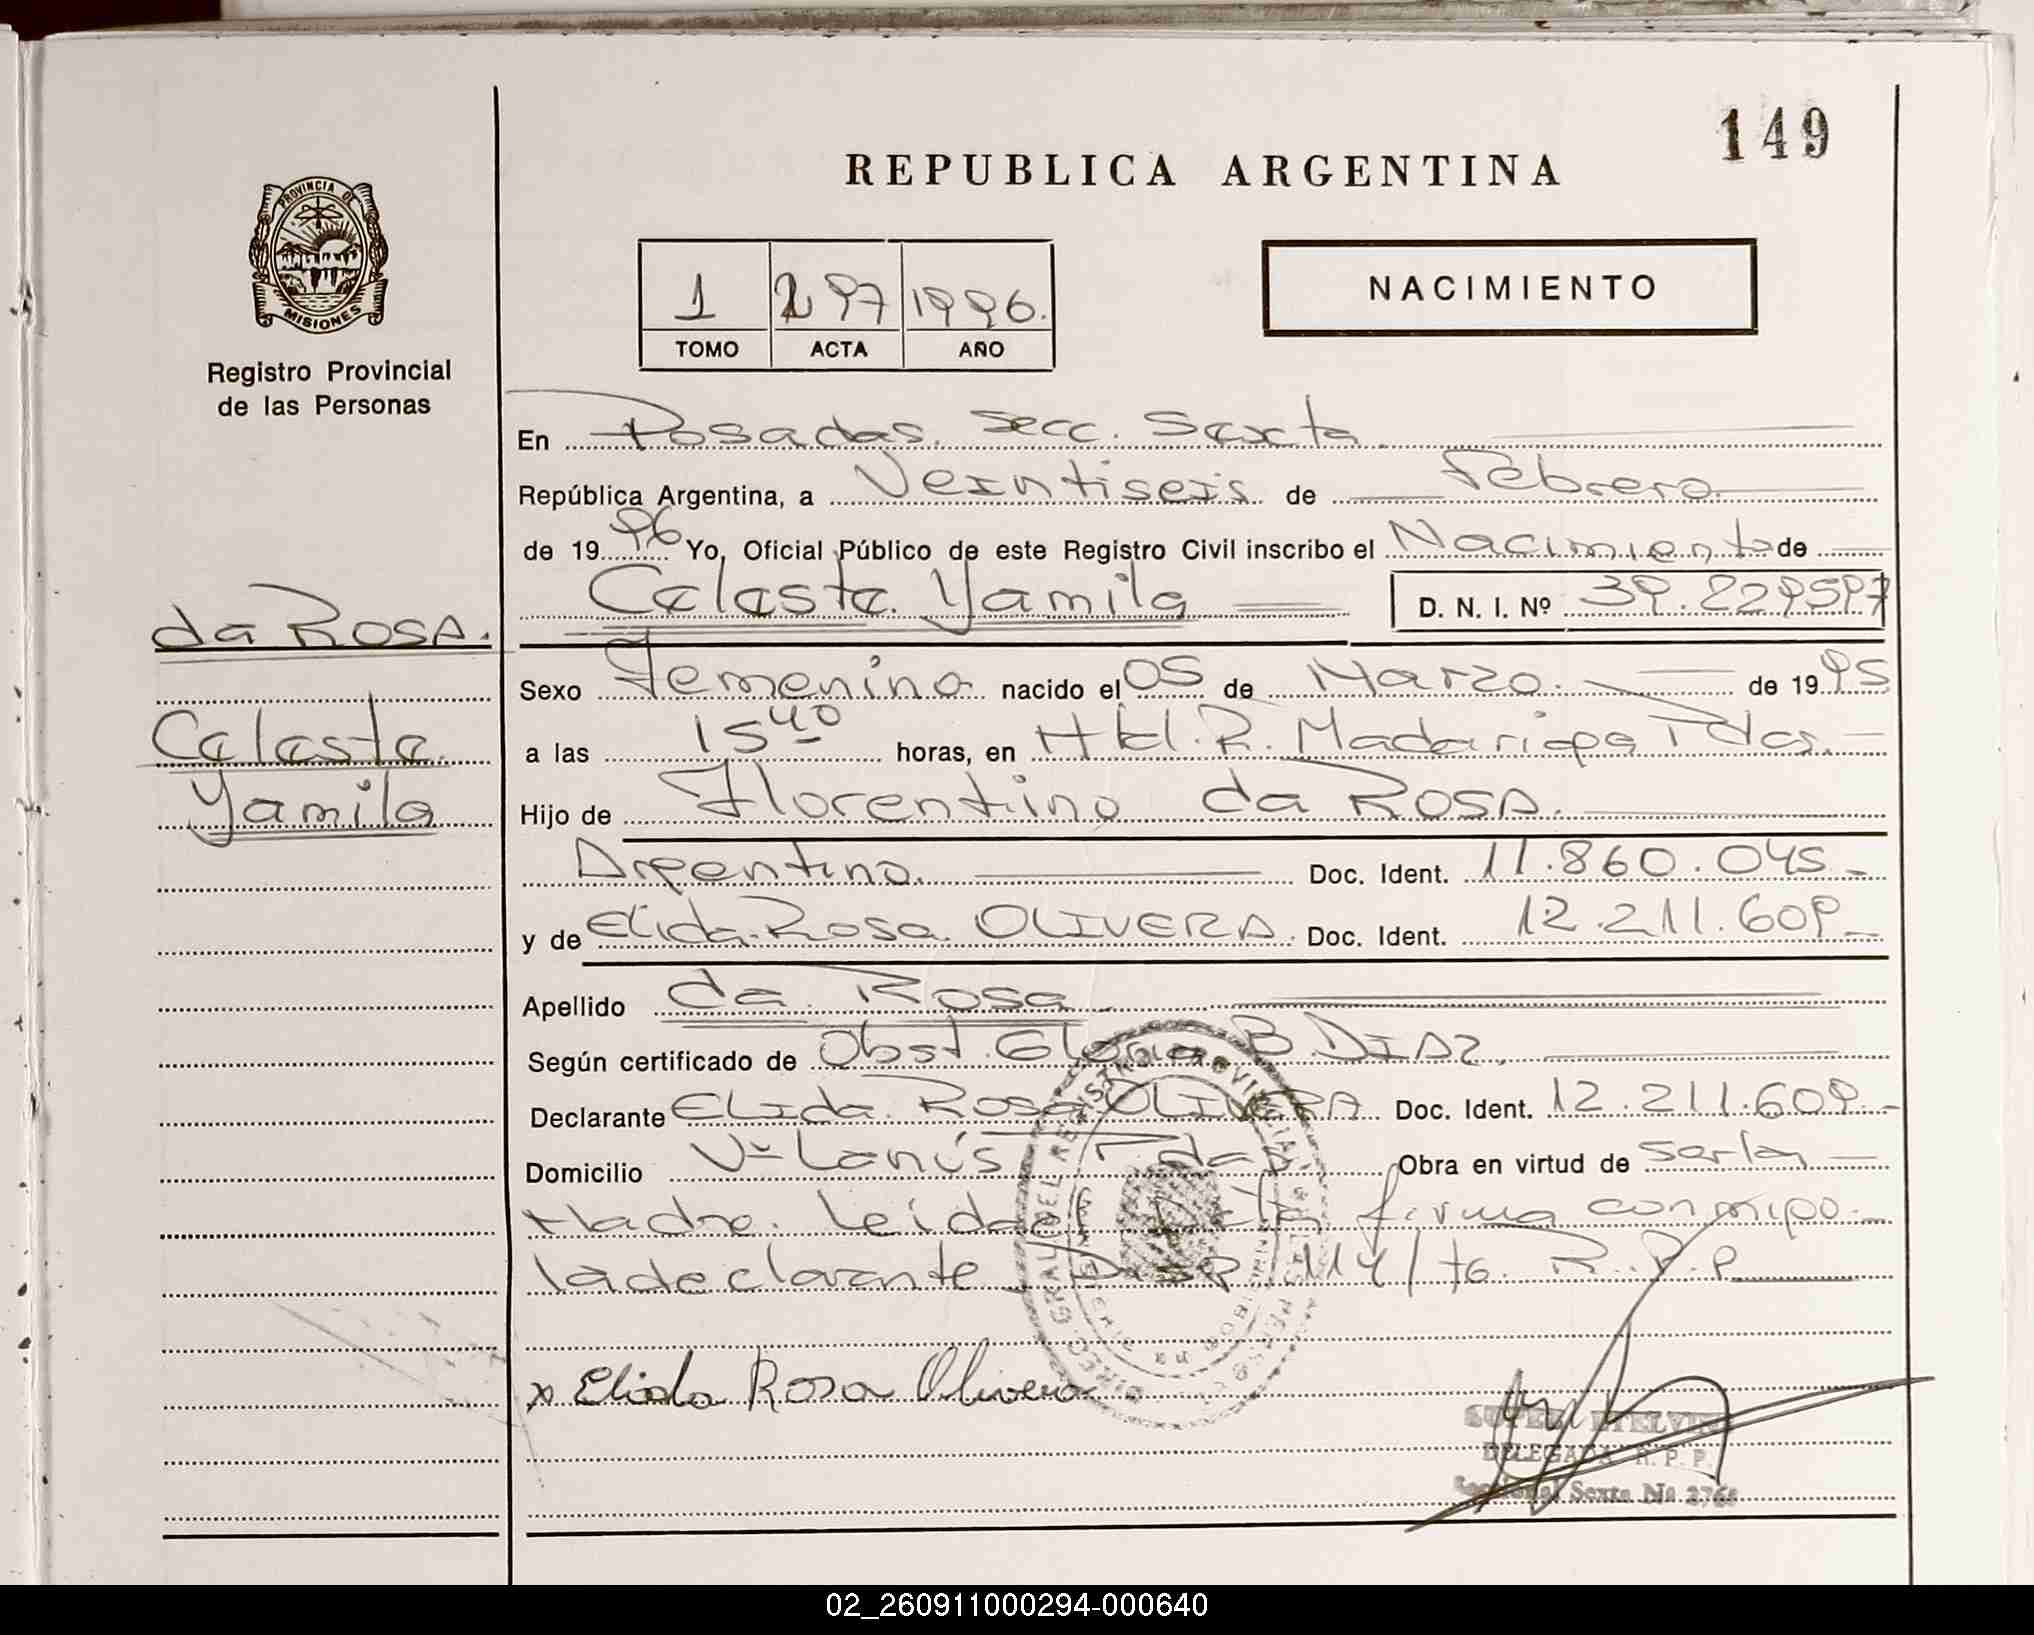 149
REPUBLICA ARGENTINA
PROVINCIA DE
MISIONES
Registro Provincial
de las Personas
1 297 1996.
TOMO ACTA AÑO
NACIMIENTO
En Posadas. Secc. Sexta
República Argentina, a Veintiseis de Febrero
de 1996 Yo, Oficial Público de este Registro Civil inscribo el Nacimiento de
Celeste Yamila D. N. I. Nº 39.229597
da ROSA.
Celeste
Yamila
Sexo Femenino nacido el 05 de Marzo. de 1995
a las 15 40 horas, en Htal. R. Madariaga Pdas.
Hijo de Florentino da ROSA.
Argentino. Doc. Ident. 11.860.045
y de Elida Rosa OLIVERA. Doc. Ident. 12.211.609
Apellido da Rosa
Según certificado de Obst. Gloria B. DIAZ,
Declarante ELida Rosa OLIVERA Doc. Ident. 12.211.609
Domicilio Vª Lanús Pdas Obra en virtud de ser la
Madre. Leída el Acta firma conmigo
la declarante Disp. 114/76. R.P.P
x Elida Rosa Olivera
DELEGADA R. P. P.
Seccional Sexta Nº
02_260911000294-000640